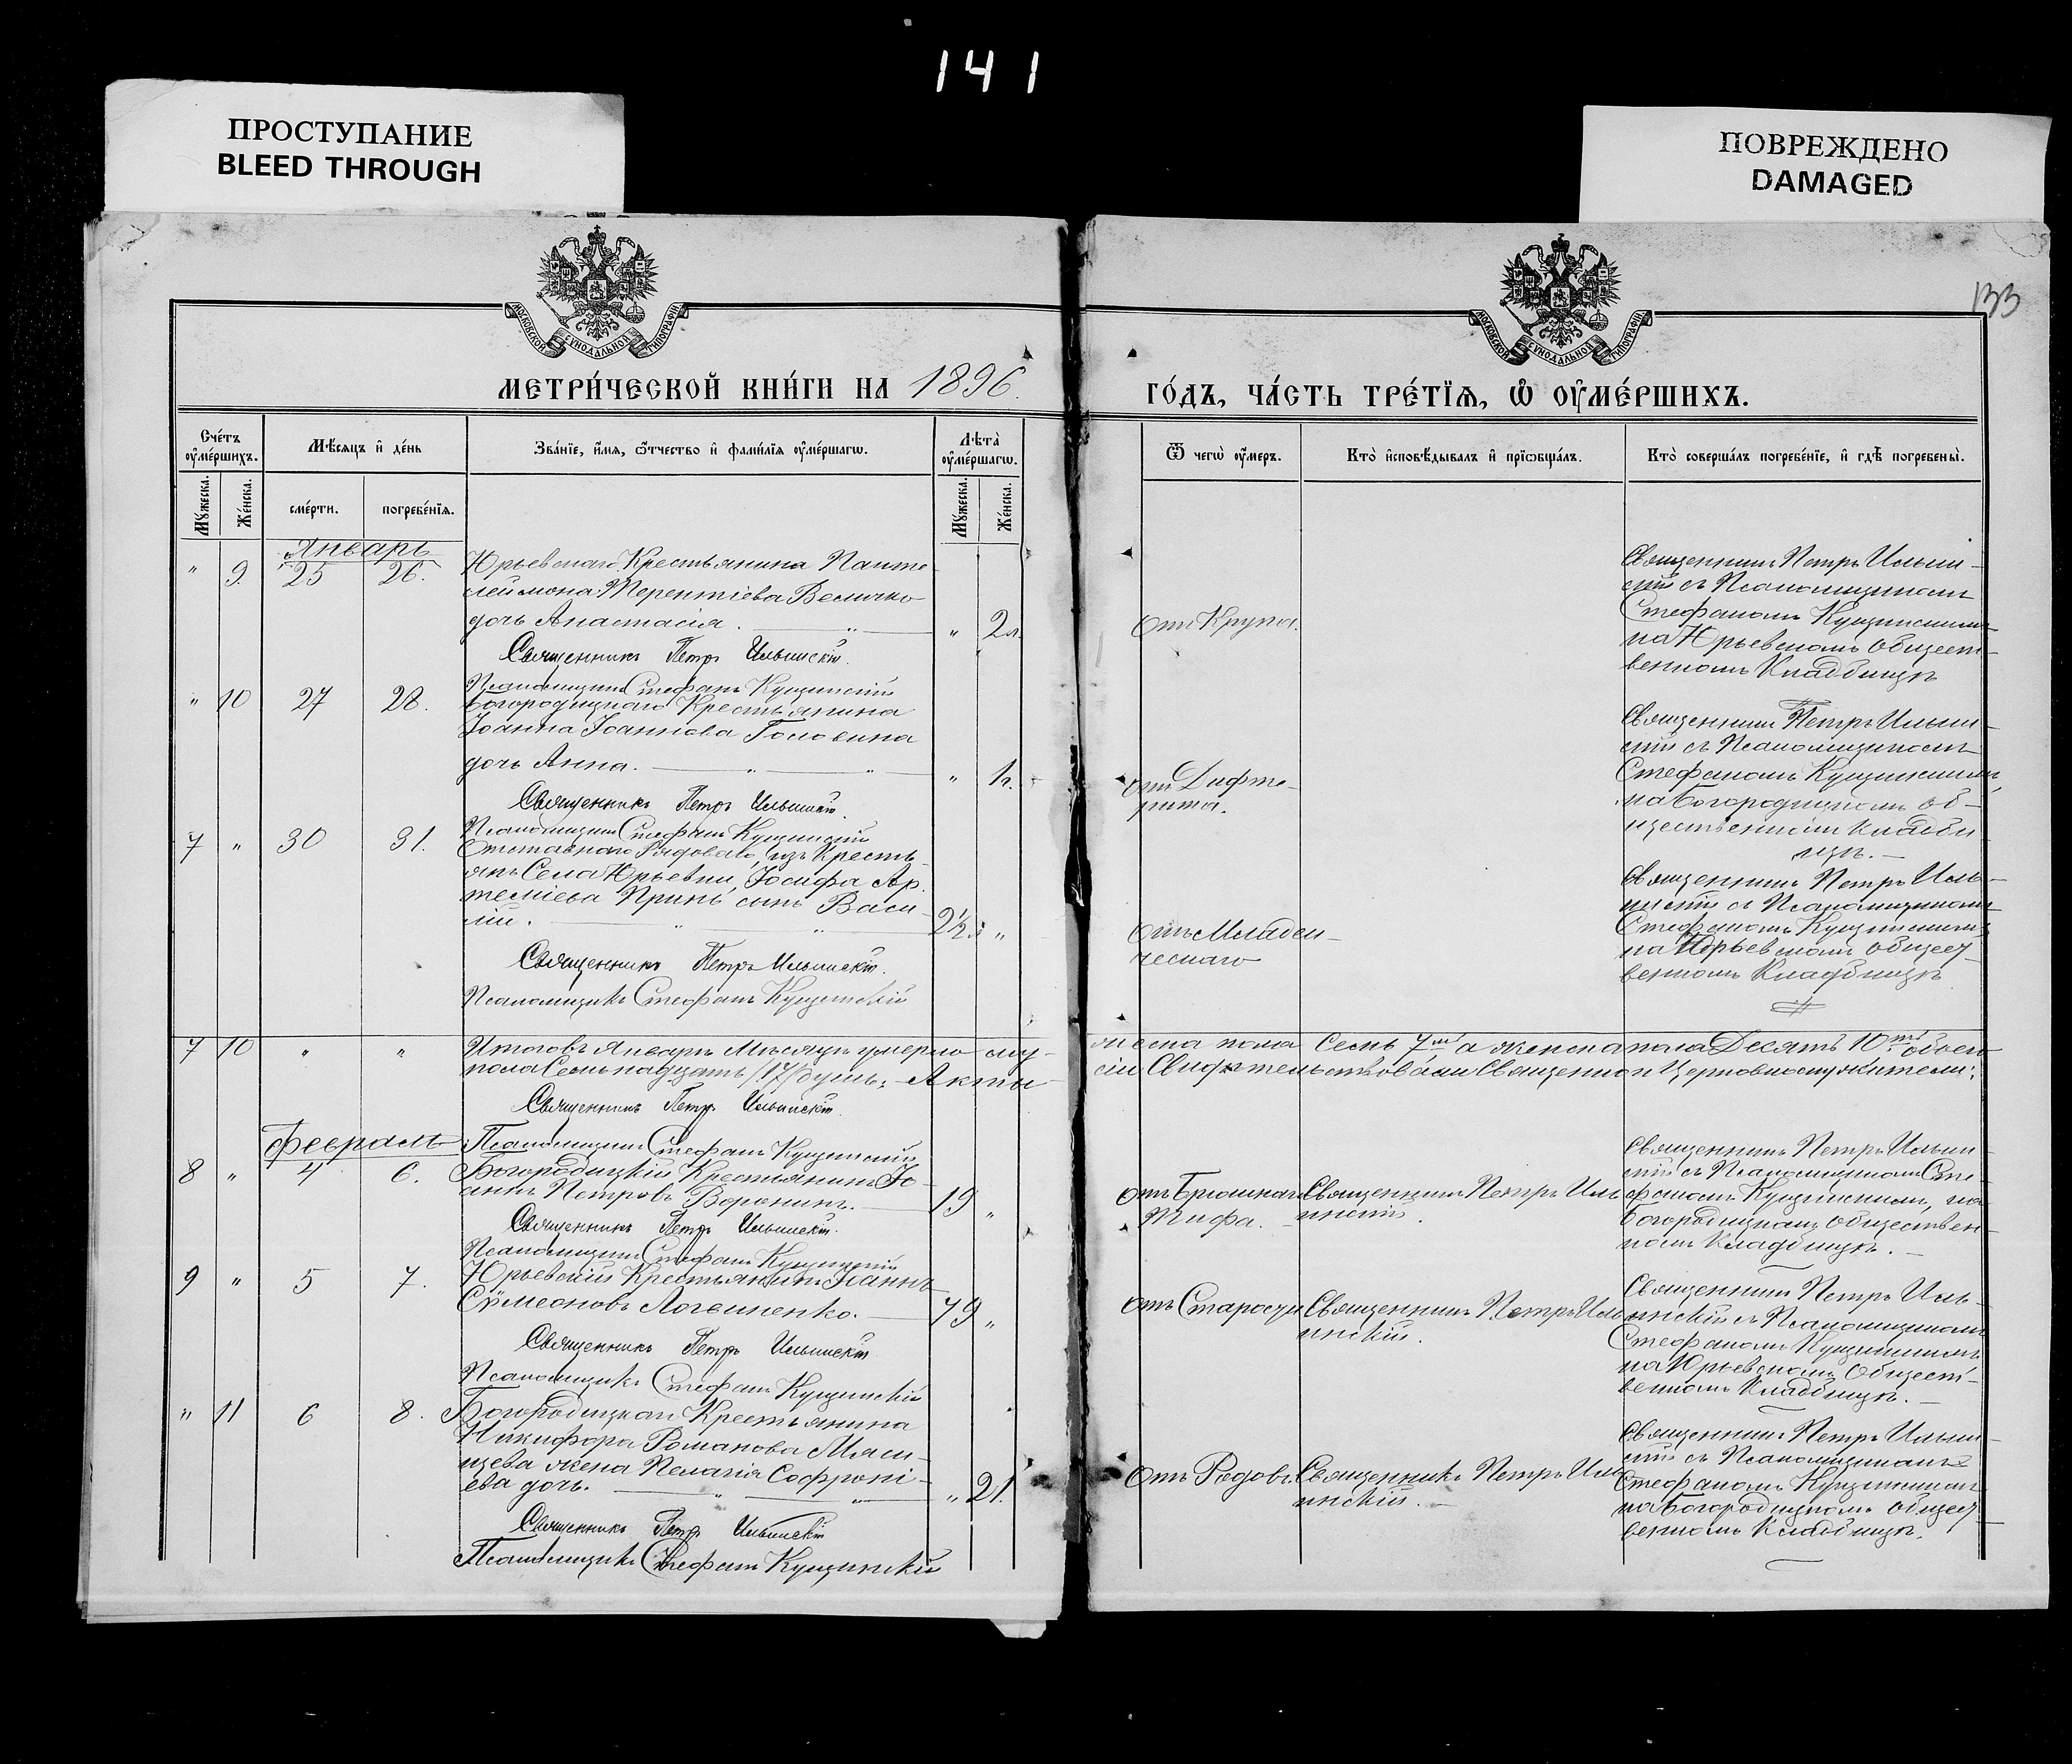 141
ПРОСТУПАНИЕ
BLEED THROUGH
ПОВРЕЖДЕНО
DAMAGED
133
МОСКОВСКОЙ СѴНОДАЛЬНОЙ ТИПОГРАФІИ
МОСКОВСКОЙ СѴНОДАЛЬНОЙ ТИПОГРАФІИ
МЕТРИ́ЧЕСКОЙ КНИ́ГИ НА 1896.
ГО́ДЪ, ЧА́СТЬ ТРЕ́ТЇѦ, Ѡ҆ ОУ҆МЕ́РШИХЪ.
Сче́тъ оу҆ме́ршихъ.
Мѣ́сяцъ и҆ де́нь
Зва́нїе, и҆́мя, ѻ҆́тчество и҆ фами́лїя оу҆ме́ршагѡ.
Лѣ́та оу҆ме́ршагѡ.
Ѿ чегѡ̀ оу҆́меръ.
Кто̀ и҆сповѣ́дывалъ и҆ прїѡбща́лъ.
Кто̀ соверша́лъ погребе́нїе, и҆ гдѣ̀ погребены̀.
Му́жеска.
Же́нска.
сме́рти.
погребе́нїя.
Му́жеска.
Же́нска.
Январь
" 9. 25 26. Юрьевскаго Крестьянина Панте-
леймона Терентіева Величко
дочь Анастасія. " 2 л.
Священникъ Петръ Ильинскій.
Псаломщикъ Стефанъ Кущинскій
отъ Крупа.
Священникъ Петръ Ильин-
скій съ Псаломщикомъ
Стефаномъ Кущинскимъ
на Юрьевскомъ общест-
венномъ Кладбищѣ
" 10 27 28. Богородицкаго Крестьянина
Іоанна Іоаннова Головина
дочь Анна. " 1 г.
Священникъ Петръ Ильинскій.
Псаломщикъ Стефанъ Кущинскій
отъ Дифте-
рита.
Священникъ Петръ Ильин-
скій съ Псаломщикомъ
Стефаномъ Кущинскимъ,
на Богородицкомъ об-
щественномъ кладби-
щѣ. —
7 " 30 31. Отставного Рядового, изъ Кресть-
янъ Села Юрьевки, Іосифа Ар-
теміева сынъ Васи-
лій. 2½ "
Священникъ Петръ Ильинскій.
Псаломщикъ Стефанъ Кущинскій
отъ Младен-
ческаго
Священникъ Петръ Иль-
инскій съ Псаломщикомъ
Стефаномъ Кущинскимъ
на Юрьевскомъ общест-
венномъ Кладбищѣ
7 10 " " Итого въ Январѣ Мѣсяцѣ умерло му-
жеска пола Семь 7мь а женска пола Десять 10ть обоего
пола Семьнадцать /17/ душъ. – Акты
сіи Свидѣтельствовали Священно и Церковнослужители:
Священникъ Петръ Ильинскій.
Псаломщикъ Стефанъ Кущинскій
Февраль
8 " 4 6. Богородицкій Крестьянинъ Іо-
аннъ Петровъ Воронинъ. 19 "
Священникъ Петръ Ильинскій.
Псаломщикъ Стефанъ Кущинскій
отъ Брюшнаго
Тифа.
Священникъ Петръ Иль-
инскій.
Священникъ Петръ Ильин-
скій съ Псаломщикомъ Сте-
фаномъ Кущинскимъ, на
Богородицкомъ обществен-
номъ Кладбищѣ. —
9 " 5 7. Юрьевскій Крестьянинъ Іоаннъ
Сѵмеоновъ Логвиненко. 79 "
Священникъ Петръ Ильинскій
Псаломщикъ Стефанъ Кущинскій
отъ Старости
Священникъ Петръ Иль-
инскій.
Священникъ Петръ Иль-
инскій съ Псаломщикомъ
Стефаномъ Кущинскимъ
на Юрьевскомъ Общест-
венномъ Кладбищѣ. —
" 11 6 8. Богородицкаго Крестьянина
Никифора Романова Мяси-
щева жена Пелагія Софроні-
ева дочь. " 21.
Священникъ Петръ Ильинскій
Псаломщикъ Стефанъ Кущинскій
Отъ Родовъ.
Священникъ Петръ Иль-
инскій. —
Священникъ Петръ Ильин-
скій съ Псаломщикомъ
Стефаномъ Кущинскимъ
на Богородицкомъ общест-
венномъ Кладбищѣ.